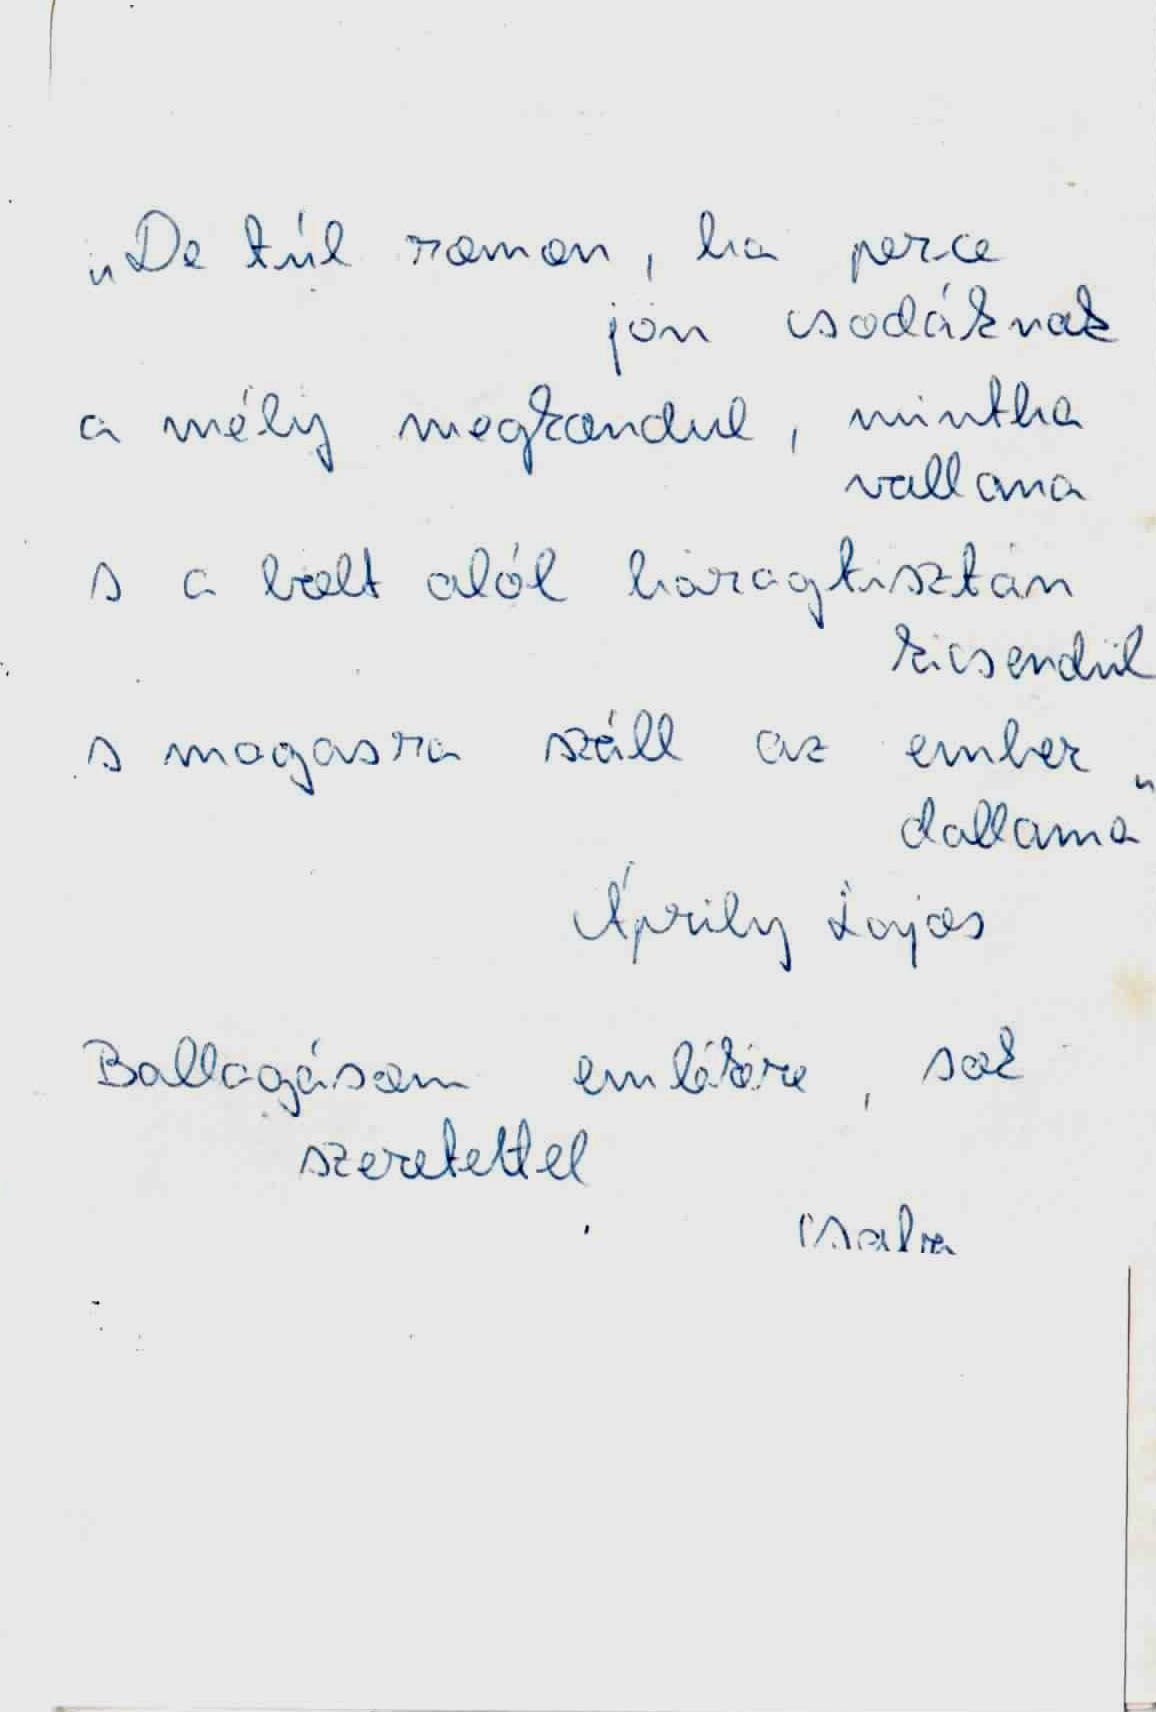 „De túl romon, ha perce
jön csodáknak
a mély megkondul, mintha
vallana
s a bolt alól harangtisztán
kicsendül
s magasra száll az ember
dallama"
Áprily Lajos
Ballagásom emlékére, sok
szeretettel
Csaba